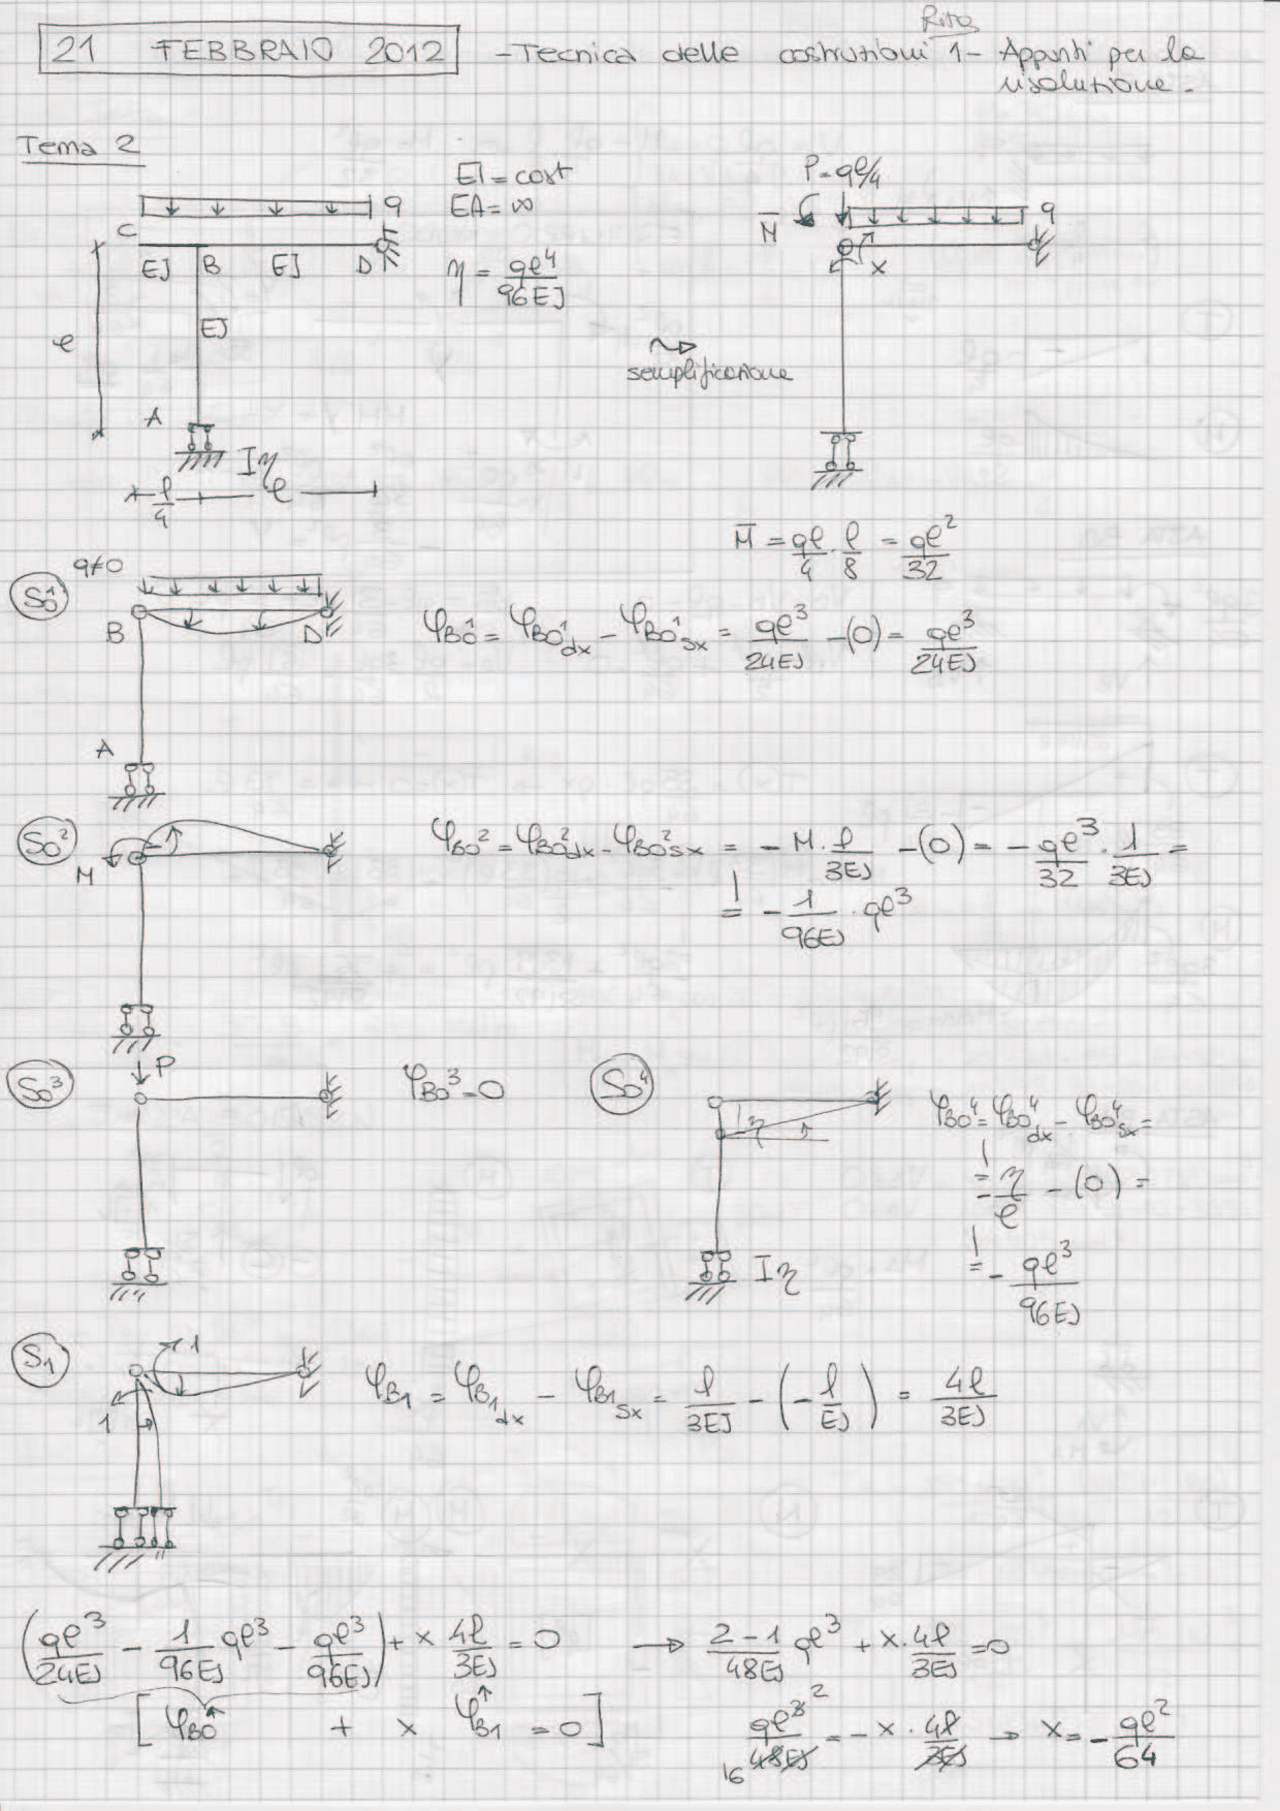 Rita
21 FEBBRAIO 2012 - Tecnica delle costruzioni 1 - Appunti per la
risoluzione.
Tema 2
q
C
EJ B EJ D
EJ
ℓ
A
Iη
ℓ/4 ℓ
EI = cost
EA = ∞
η = qℓ⁴/96EJ
⤳
semplificazione
P = qℓ/4
M̅ q
x
M̅ = qℓ/4 · ℓ/8 = qℓ²/32
So¹ q≠0
B D
A
φBo¹ = φBo¹dx - φBo¹sx = qℓ³/24EJ - (0) = qℓ³/24EJ
So²
M
φBo² = φBo²dx - φBo²sx = - M·ℓ/3EJ - (0) = - qℓ³/32 · 1/3EJ =
= - 1/96EJ · qℓ³
So³ P
φBo³ = 0
So⁴
η
Iη
φBo⁴ = φBo⁴dx - φBo⁴sx =
= - η/ℓ - (0) =
= - qℓ³/96EJ
S1 1
1
φB1 = φB1dx - φB1sx = ℓ/3EJ - (- ℓ/EJ) = 4ℓ/3EJ
(qℓ³/24EJ - 1/96EJ qℓ³ - qℓ³/96EJ) + x 4ℓ/3EJ = 0 → 2-1/48EJ qℓ³ + x · 4ℓ/3EJ = 0
[φBo + x φB1 = 0]
qℓ³ ²/16 48EJ = - x · 4ℓ/3EJ → x = - qℓ²/64